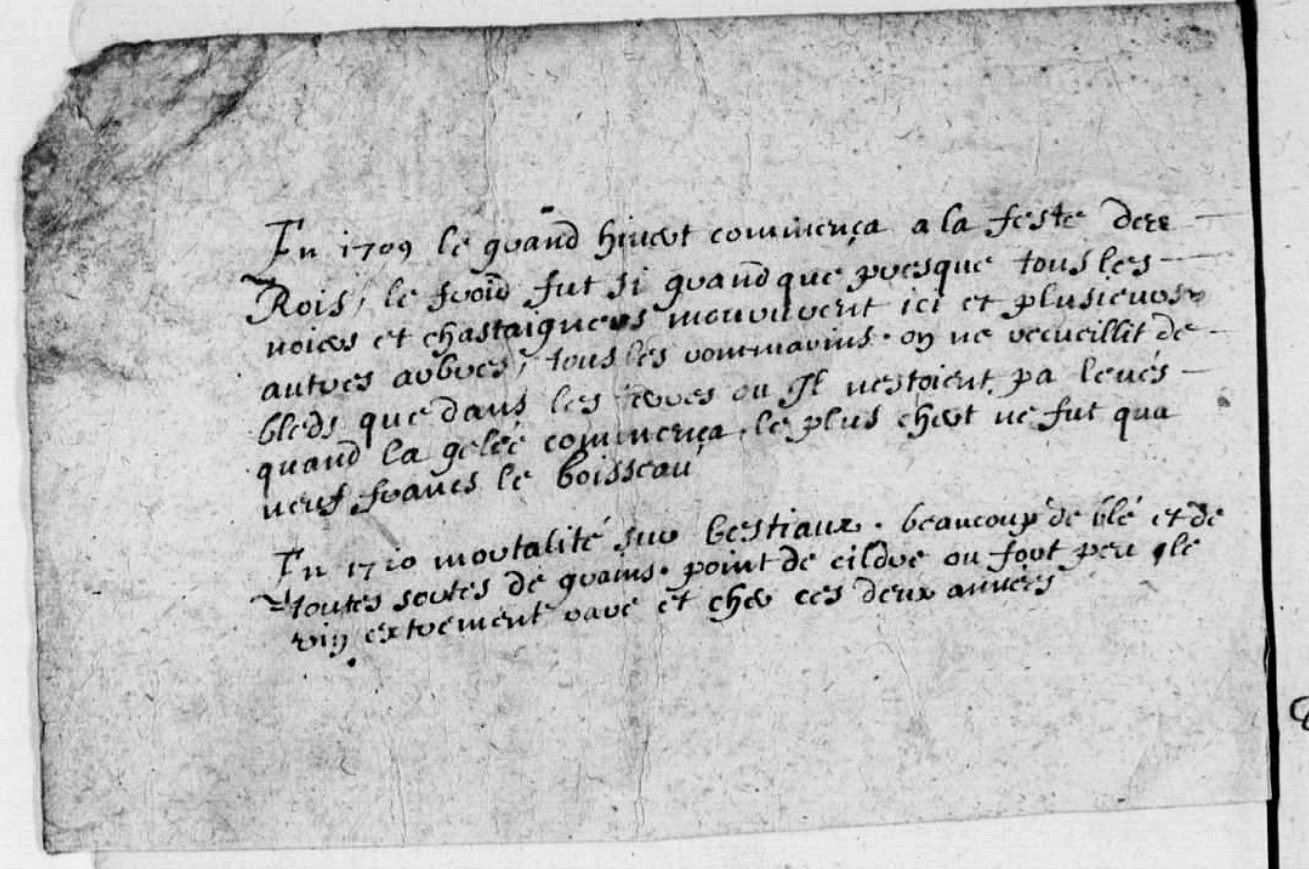 En 1709 le grand hivert commença a la feste des
Rois, le froid fut si grand que presque tous les
noiers et chastaigners mourruvent ici et plusieurs
autres arbres, tous les rommarins. on ne recueillit de
bleds que dans les terres ou Il nestoient pa levés
quand la gelée commença, le plus chert ne fut qua
neuf francs le boisseau
En 1710 mortalité sur bestiaux. beaucoup de blé et de
toutes sortes de grains. point de cildre ou fort peu le
vin extrement rare et cher ces deux années